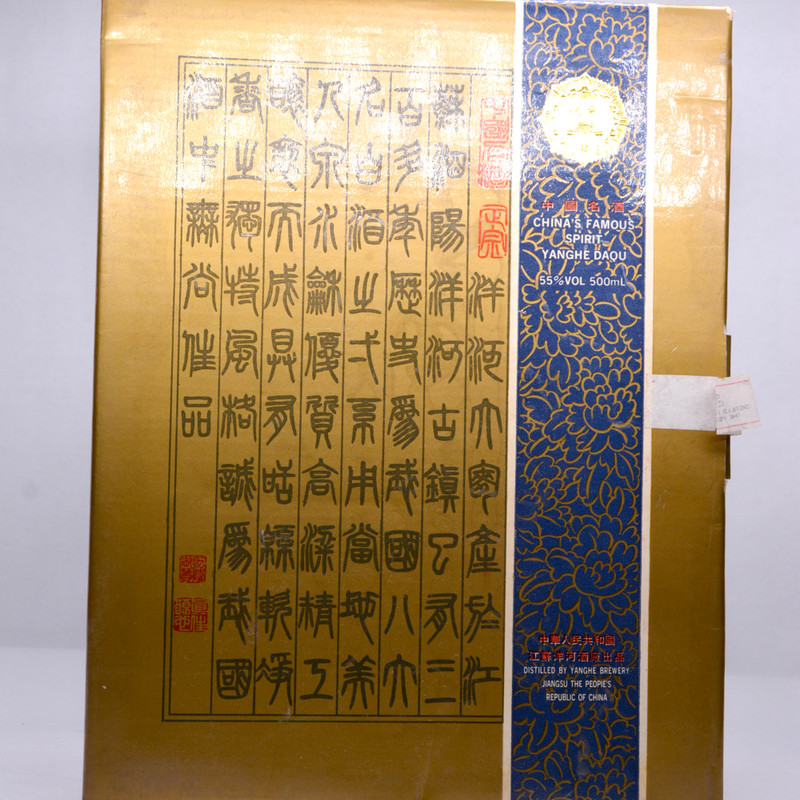 正宗
洋河大曲產於江
蘇泗陽洋河古鎮已有三
百多年歷史爲我國八大
名白酒之弌系用當地美
人泉水龢優質高粱精工
釀而成具有甜綿軟淨
香之獨特風格誠爲我國
酒中無尚佳品
中國名酒
CHINA'S FAMOUS
SPIRIT
YANGHE DAQU
55%VOL 500mL
中華人民共和國
江蘇洋河酒廠出品
DISTILLED BY YANGHE BREWERY
JIANGSU THE PEOPLE'S
REPUBLIC OF CHINA